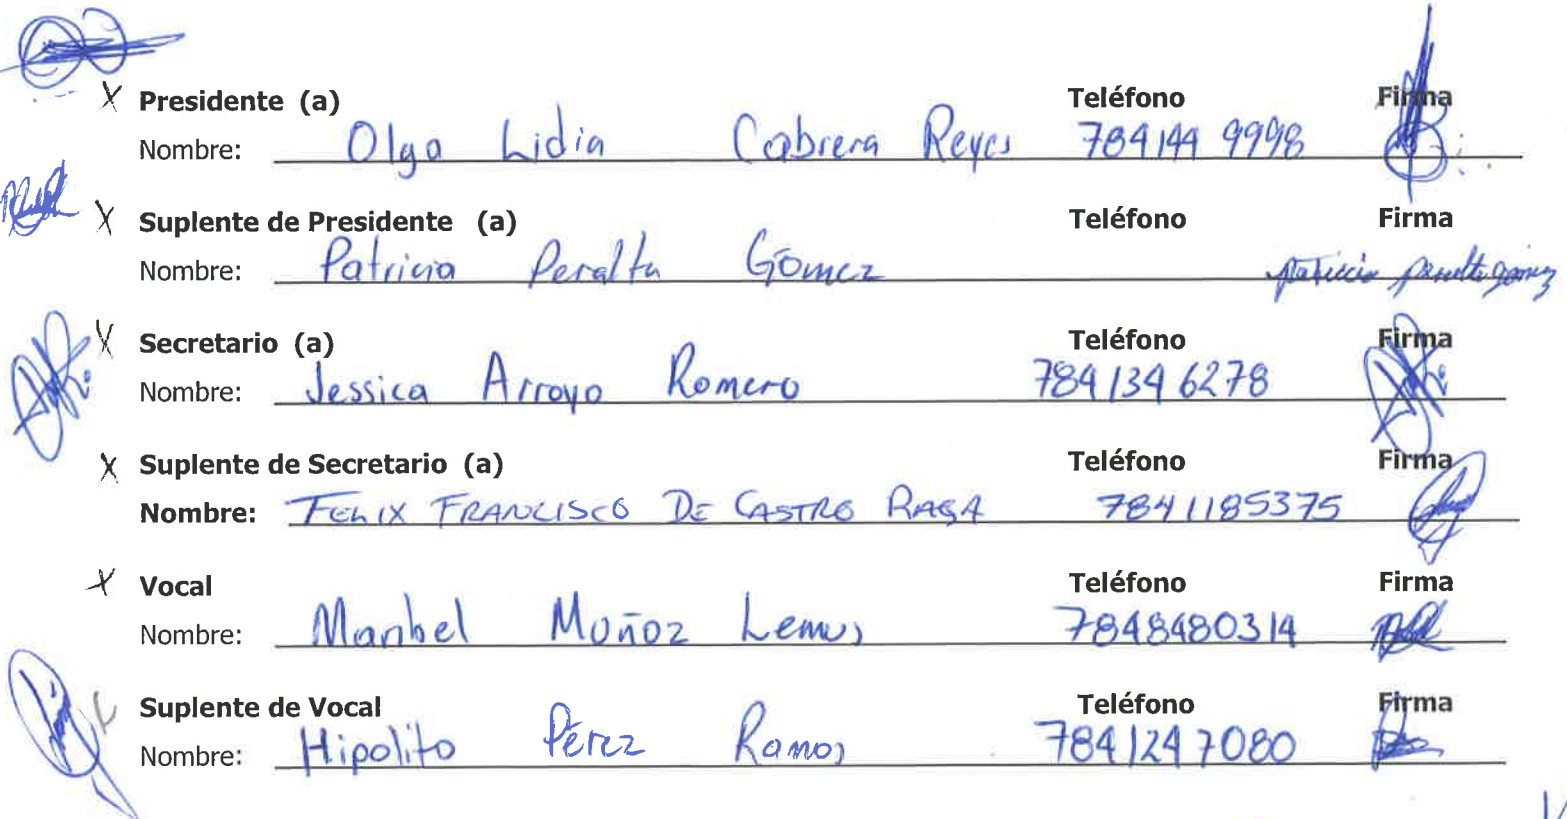 X Presidente (a) Teléfono Firma
Nombre: Olga Lidia Cabrera Reyes 784 144 9998
X Suplente de Presidente (a) Teléfono Firma
Nombre: Patricia Peralta Gómez patricia peralta gomez
X Secretario (a) Teléfono Firma
Nombre: Jessica Arroyo Romero 784 134 6278
X Suplente de Secretario (a) Teléfono Firma
Nombre: FELIX FRANCISCO DE CASTRO RAGA 7841185375
X Vocal Teléfono Firma
Nombre: Maribel Muñoz Lemus 7848480314
Suplente de Vocal Teléfono Firma
Nombre: Hipolito Pérez Ramos 784 124 7080